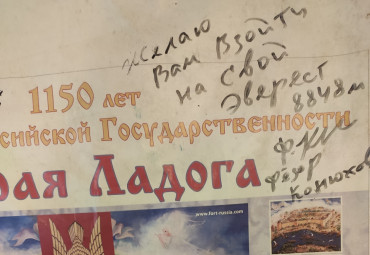 Желаю
Вам Взойти
на Свой
Эверест
8848м
Фёдор
Конюхов
1150 лет
сийской Государственности
рая Ладога
www.fort-russia.com